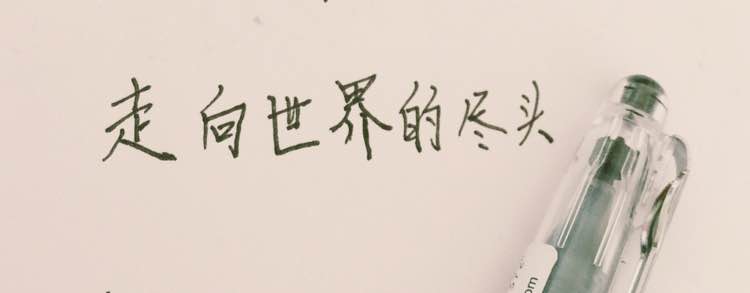 走向世界的尽头
om